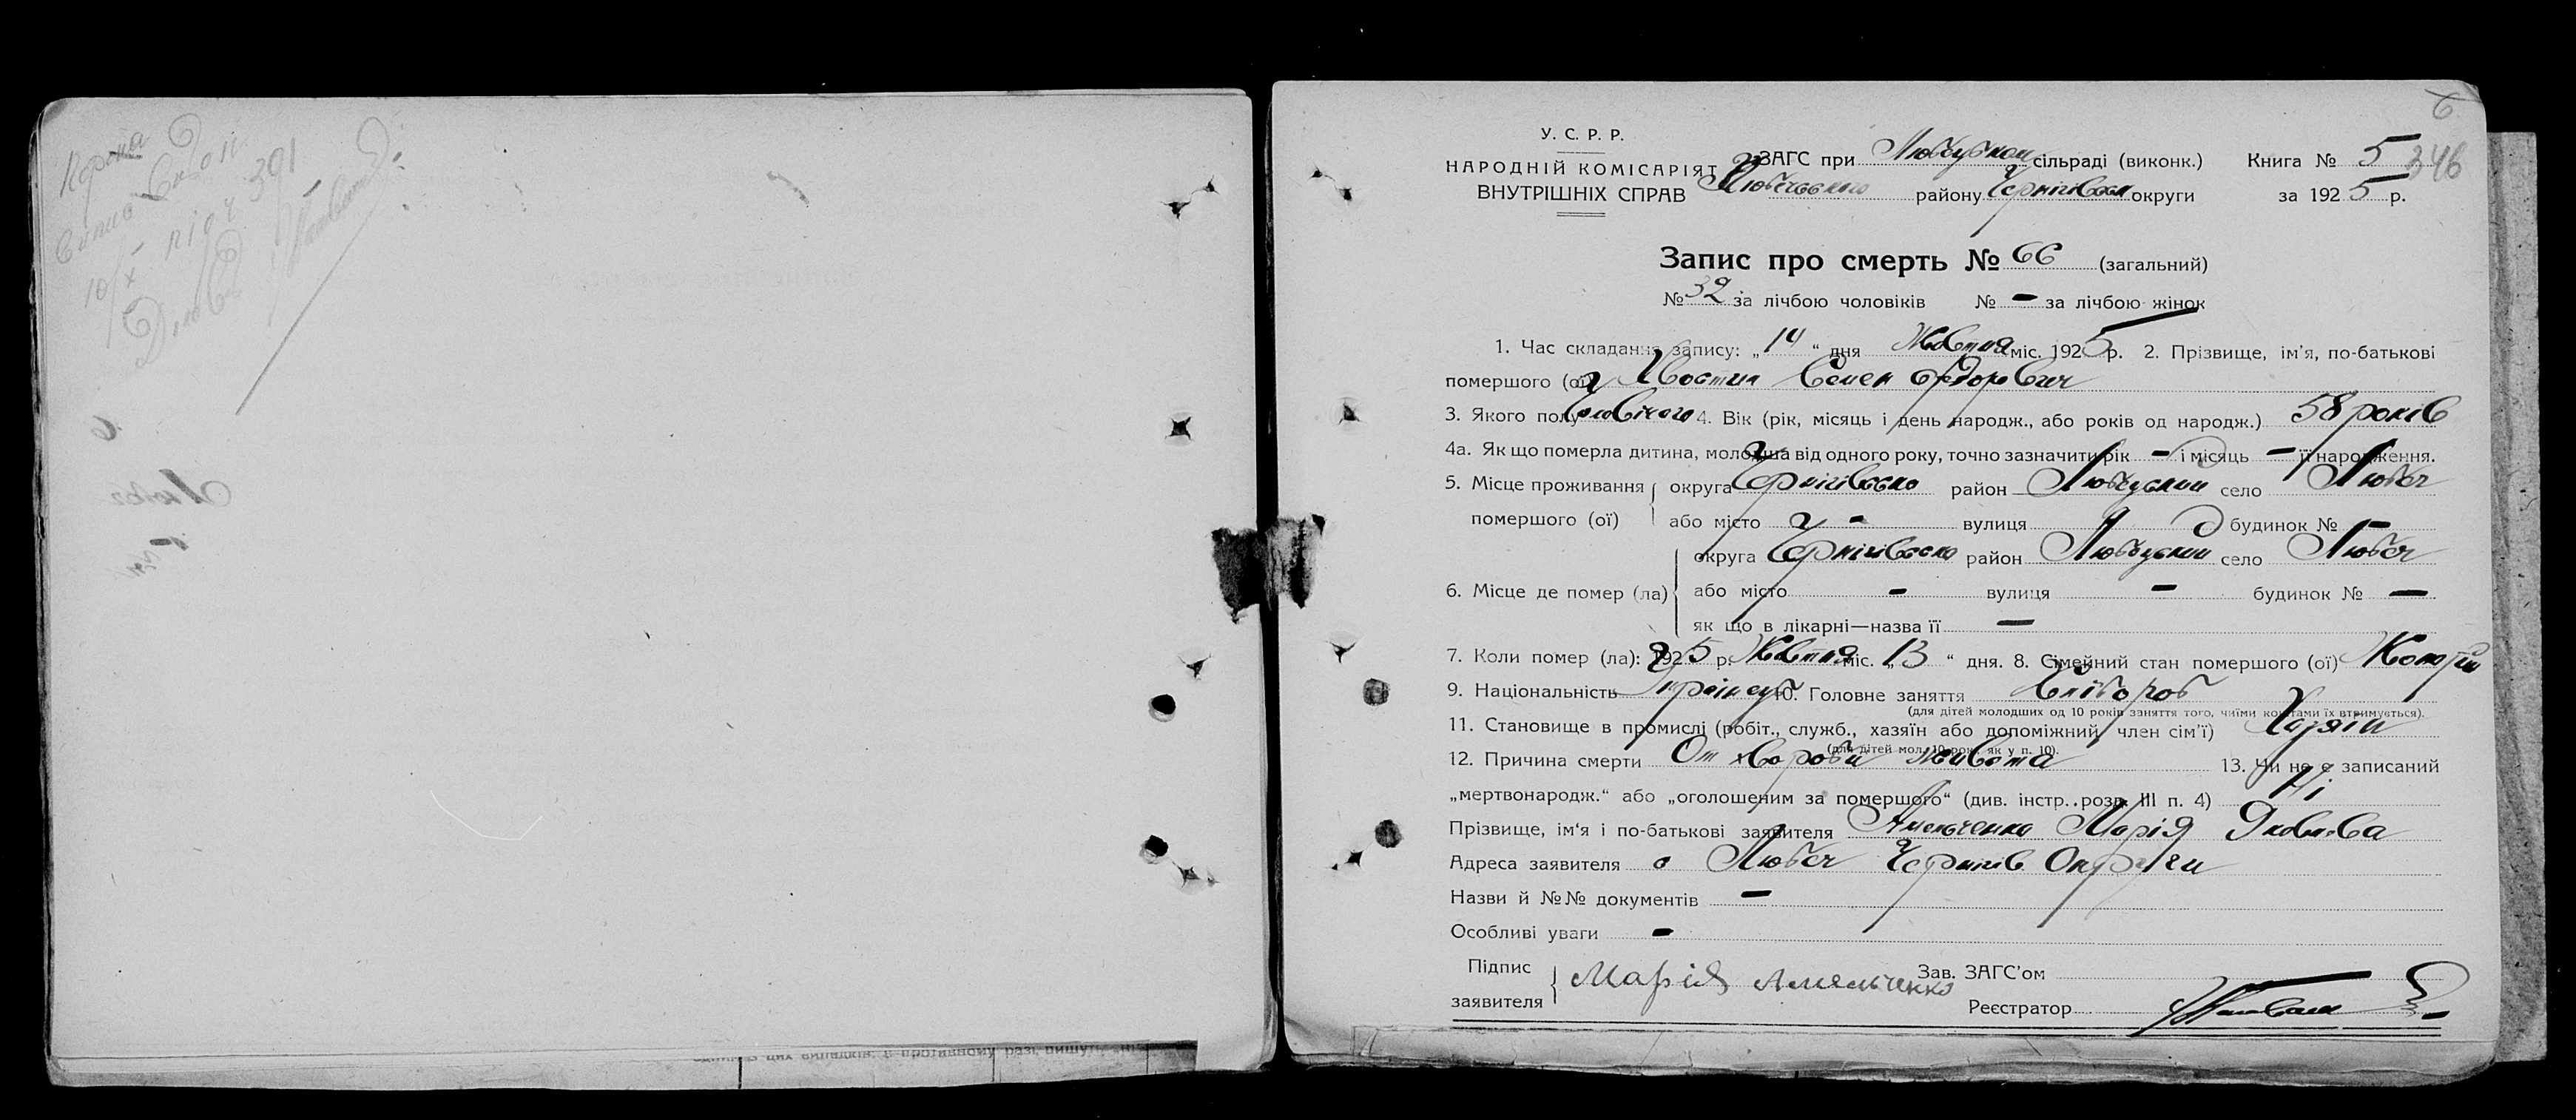 Копия
391
6
У. С. Р. Р.
НАРОДНІЙ КОМІСАРІЯТ
ВНУТРІШНІХ СПРАВ
ЗАГС при Любецькой сільраді (виконк.) Книга № 5 346
району Чернігівськ округи за 1925 р.
Запис про смерть № 66 (загальний)
№ 32 за лічбою чоловіків № - за лічбою жінок
1. Час складання запису: „14“ дня Жовтня міс. 1925 р. 2. Прізвище, ім'я, по-батькові
помершого (ої) Семен Федорович
3. Якого полу Чоловічого 4. Вік (рік, місяць і день народж., або років од народж.) 58 років
4а. Як що померла дитина, молодша від одного року, точно зазначити рік - і місяць - її народження.
5. Місце проживання округа Чернігівсько район Любецький село Любеч
помершого (ої) або місто - вулиця будинок № -
округа Чернігівсько район Любецький село Любеч
6. Місце де помер (ла) або місто - вулиця - будинок № -
як що в лікарні—назва її -
7. Коли помер (ла): 1925 р. Жовтня міс. „13“ дня. 8. Сімейний стан помершого (ої)
9. Національність 10. Головне заняття Хлібороб
(для дітей молодших од 10 років заняття того, чиїми коштами їх втримується).
11. Становище в промислі (робіт., служб., хазяїн або допоміжний член сім'ї) Хазяін
(для дітей мол. 10 рок. як у п. 10).
12. Причина смерти От хвороби живота 13. Чи не є записаний
„мертвонародж.“ або „оголошеним за помершого“ (див. інстр. розд. III п. 4) Ні
Прізвище, ім'я і по-батькові заявителя Амельченко Марія Яковлева
Адреса заявителя с Любеч Чернигів Округи
Назви й №№ документів -
Особливі уваги -
Підпис
заявителя Марія Амельченко
Зав. ЗАГС'ом
Реєстратор